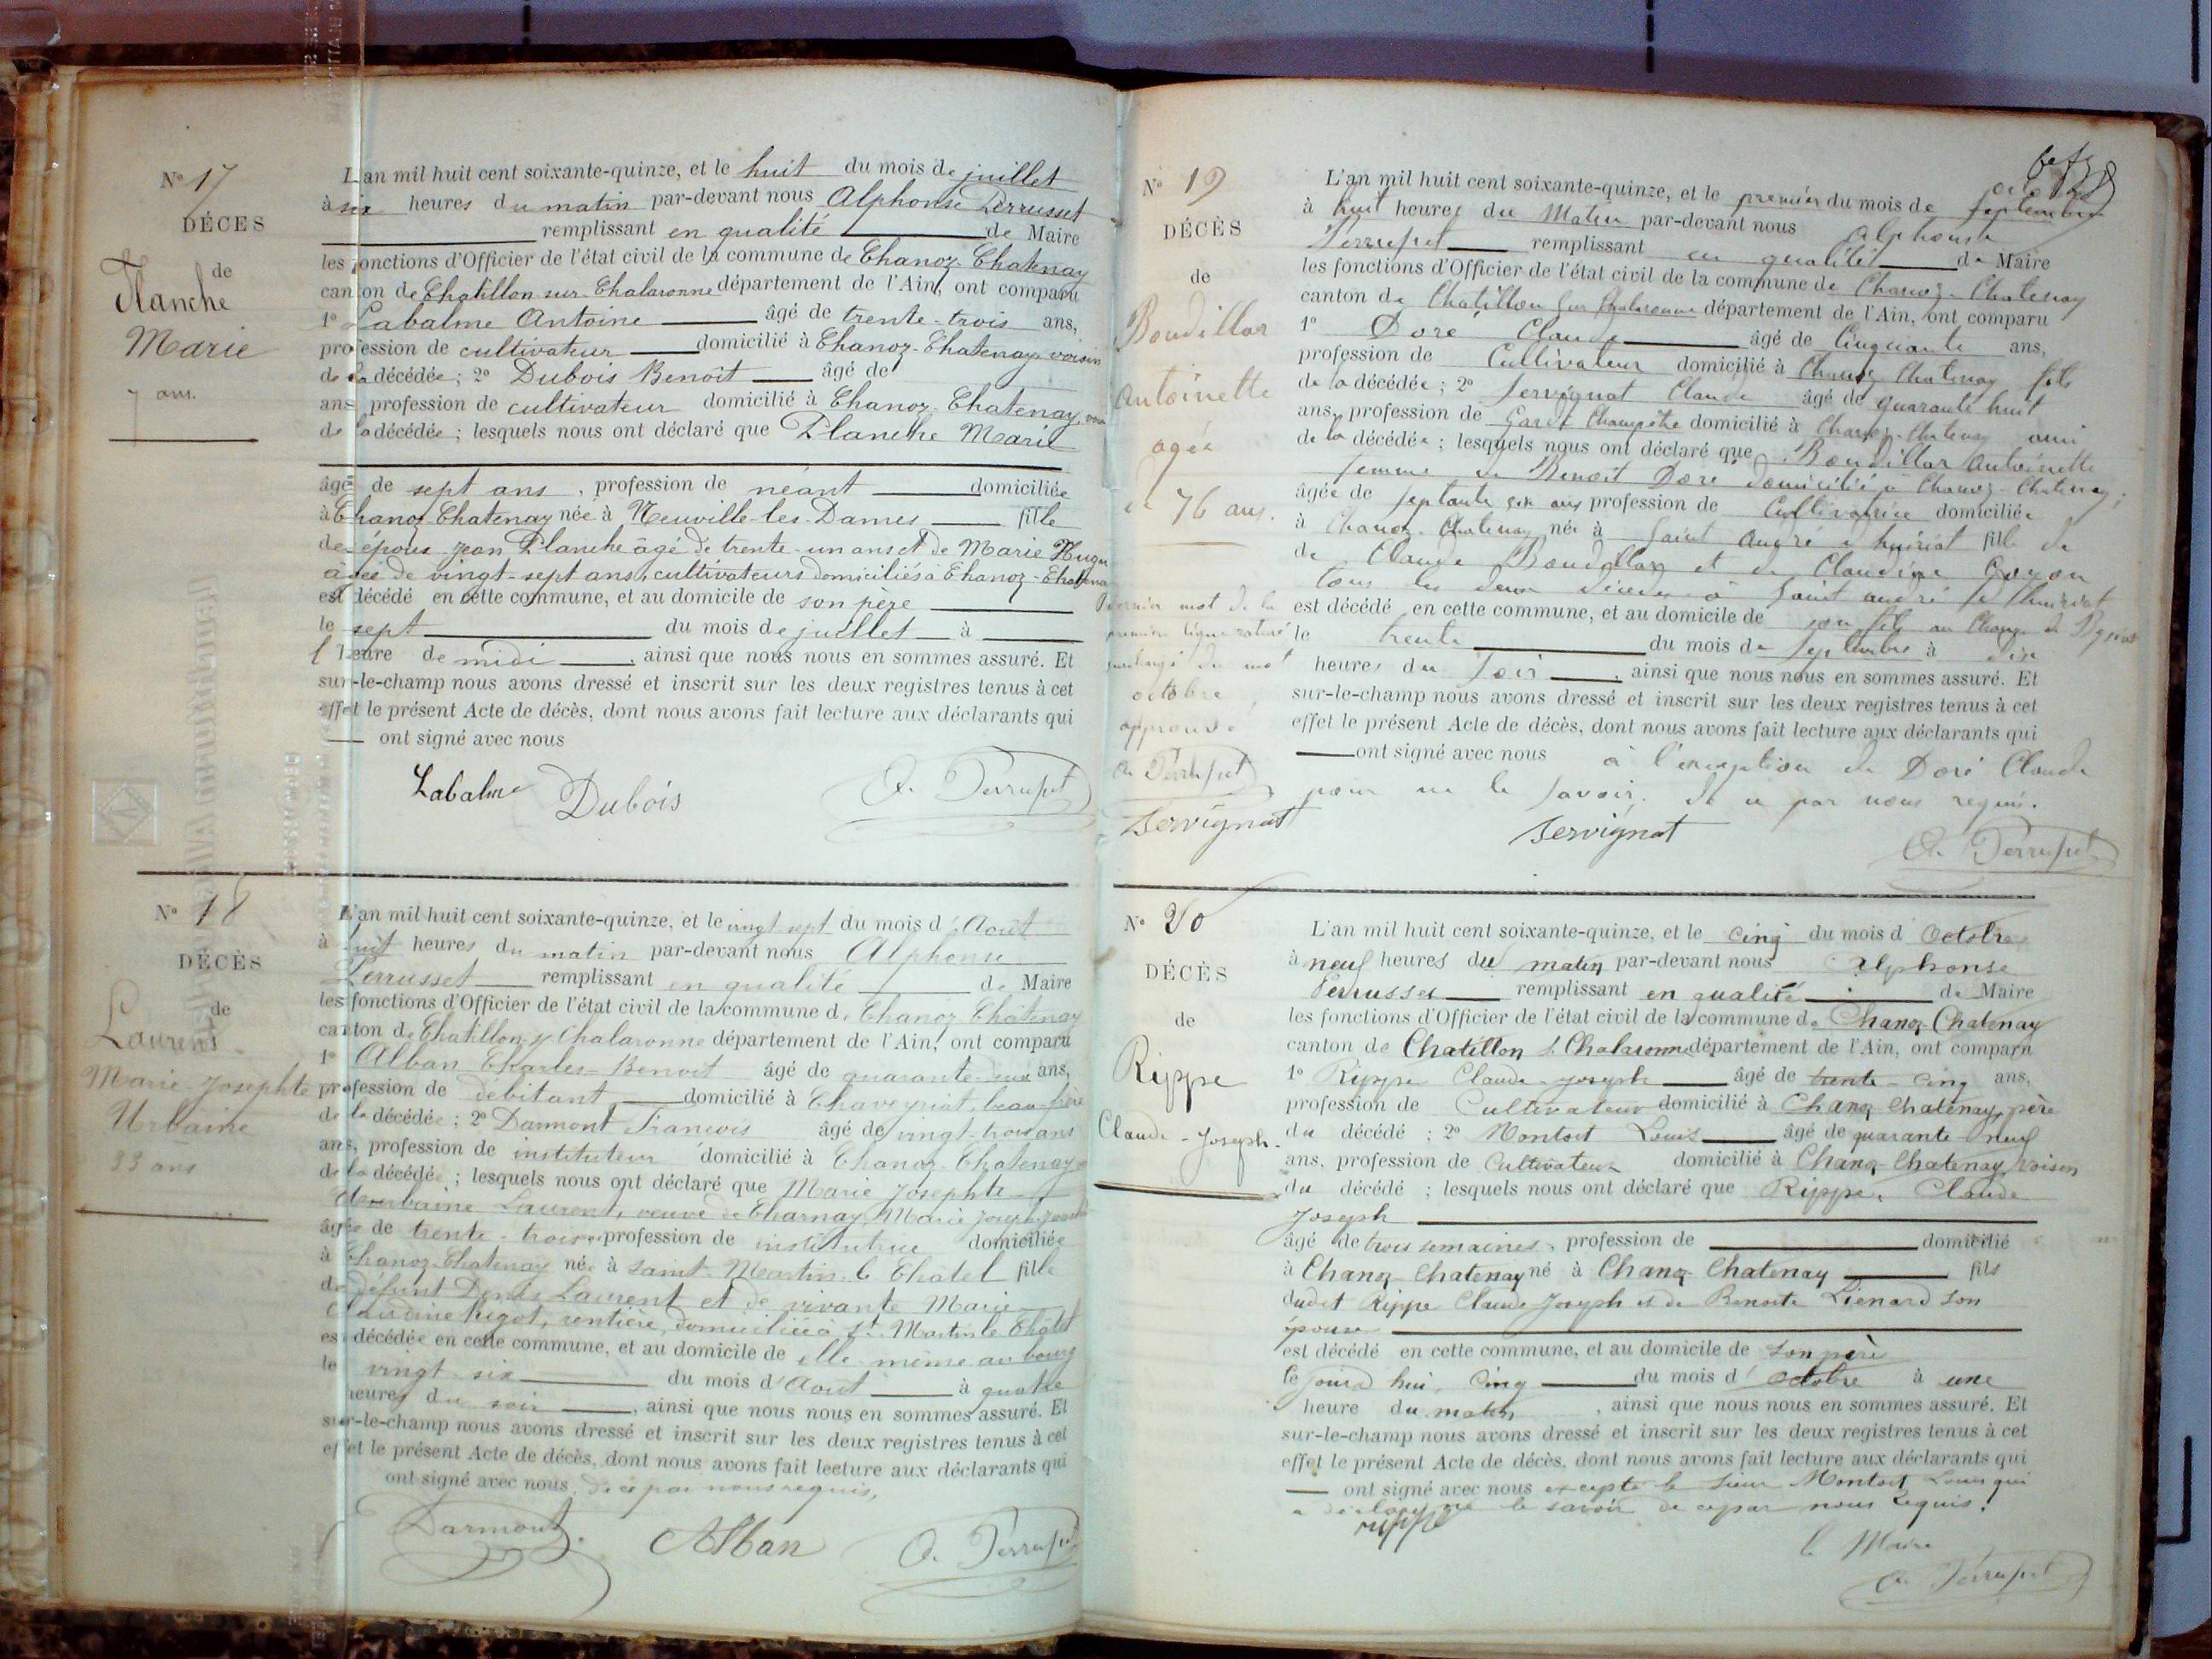 N° 17
DÉCÈS
de
Planche
Marie
7 ans.
L'an mil huit cent soixante-quinze, et le huit du mois de juillet
à six heures du matin par-devant nous Alphonse Perrusset
remplissant en qualité de Maire
les fonctions d'Officier de l'état civil de la commune de Chanoz-Chatenay
canton de Chatillon-sur-Chalaronne département de l'Ain, ont comparu
1° Labalme Antoine âgé de trente-trois ans,
profession de cultivateur domicilié à Chanoz-Chatenay voisin
de la décédée ; 2° Dubois Benoît âgé de
ans, profession de cultivateur domicilié à Chanoz-Chatenay,
de la décédée ; lesquels nous ont déclaré que Planche Marie
âgée de sept ans, profession de néant domiciliée
à Chanoz-Chatenay née à Neuville-les-Dames fille
de époux Jean Planche âgé de trente-un ans et de Marie
âgée de vingt-sept ans, cultivateurs domiciliés à Chanoz-Chatenay
est décédé en cette commune, et au domicile de son père
le sept du mois de juillet à
l'heure de midi, ainsi que nous nous en sommes assuré. Et
sur-le-champ nous avons dressé et inscrit sur les deux registres tenus à cet
effet le présent Acte de décès, dont nous avons fait lecture aux déclarants qui
ont signé avec nous
Labalme Dubois A. Perrusset
N° 18
DÉCÈS
de
Laurent
Marie-Josephte
Urbaine
33 ans
L'an mil huit cent soixante-quinze, et le vingt sept du mois d'Août
à huit heures du matin par-devant nous Alphonse
Perrusset remplissant en qualité de Maire
les fonctions d'Officier de l'état civil de la commune de Chanoz Châtenay
canton de Chatillon s/ Chalaronne département de l'Ain, ont comparu
1° Alban Charles-Benoit âgé de quarante-six ans,
profession de débitant domicilié à Chaveyriat, beau-frère
de la décédée ; 2° Darmont François âgé de vingt-trois ans
ans, profession de instituteur domicilié à Chanoz-Chatenay
de la décédée ; lesquels nous ont déclaré que Marie Josephte
Urbaine Laurent, veuve de Charnay, Marie Joseph
âgée de trente-trois profession de institutrice domiciliée
à Chanoz-Chatenay née à Saint-Martin-le-Châtel fille
de défunt Denis Laurent et de vivante Marie
Claudine Rigot, rentière, domiciliée à St Martin le Châtel
est décédée en cette commune, et au domicile de elle même au bourg
le vingt six du mois d'Août à quatre
heures du soir, ainsi que nous nous en sommes assuré. Et
sur-le-champ nous avons dressé et inscrit sur les deux registres tenus à cet
effet le présent Acte de décès, dont nous avons fait lecture aux déclarants qui
ont signé avec nous, de ce par nous requis,
Darmont Alban A. Perrusset
N° 19
DÉCÈS
de
Boudillar
Antoinette
agée
de 76 ans.
Dernier mot de la
première ligne raturé
surchargé du mot
octobre
approuvé
A. Perrusset
Servignat
L'an mil huit cent soixante-quinze, et le premier du mois de septembre
à huit heures du Matin par-devant nous Alphonse
Perrusset remplissant en qualité de Maire
les fonctions d'Officier de l'état civil de la commune de Chanoz-Chatenay
canton de Chatillon sur Chalaronne département de l'Ain, ont comparu
1° Doré Claude âgé de Cinquante ans,
profession de Cultivateur domicilié à Chanoz Chatenay fils
de la décédée ; 2° Servignat Claude âgé de quarante huit
ans, profession de Garde Champêtre domicilié à Chanoz-Chatenay ami
de la décédée ; lesquels nous ont déclaré que Boudillar Antoinette
femme de Benoît Doré domiciliée à Chanoz-Chatenay,
âgée de septante six ans profession de Cultivatrice domiciliée
à Chanoz-Chatenay née à Saint André d'huiriat fille de
de Claude Boudillar et de Claudine Goyon
tous les deux décédés à Saint andré d'huiriat
est décédé en cette commune, et au domicile de son fils au
le trente du mois de Septembre à dix
heures du Soir, ainsi que nous nous en sommes assuré. Et
sur-le-champ nous avons dressé et inscrit sur les deux registres tenus à cet
effet le présent Acte de décès, dont nous avons fait lecture aux déclarants qui
ont signé avec nous à l'exception de Doré Claude
pour ne le savoir. de ce par nous requis.
Servignat A. Perrusset
N° 20
DÉCÈS
de
Rippe
Claude-Joseph.
L'an mil huit cent soixante-quinze, et le cinq du mois d'Octobre
à neuf heures du matin par-devant nous Alphonse
Perrusset remplissant en qualité de Maire
les fonctions d'Officier de l'état civil de la commune de Chanoz-Chatenay
canton de Chatillon s. Chalaronne département de l'Ain, ont comparu
1° Rippe Claude-Joseph âgé de trente-cinq ans,
profession de Cultivateur domicilié à Chanoz Chatenay, père
du décédé ; 2° Montoit Louis âgé de quarante neuf
ans, profession de Cultivateur domicilié à Chanoz-Chatenay, voisin
du décédé ; lesquels nous ont déclaré que Rippe, Claude
Joseph
âgé de trois semaines, profession de domicilié
à Chanoz-Chatenay né à Chanoz Chatenay fils
dudit Rippe Claude Joseph et de Benoite Liénard son
épouse
est décédé en cette commune, et au domicile de son père
le jourd'hui, cinq du mois d'octobre à une
heure du matin, ainsi que nous nous en sommes assuré. Et
sur-le-champ nous avons dressé et inscrit sur les deux registres tenus à cet
effet le présent Acte de décès, dont nous avons fait lecture aux déclarants qui
ont signé avec nous excepté le sieur Montoit Louis qui
a déclaré ne le savoir de ce par nous requis.
rippe
le Maire
A. Perrusset